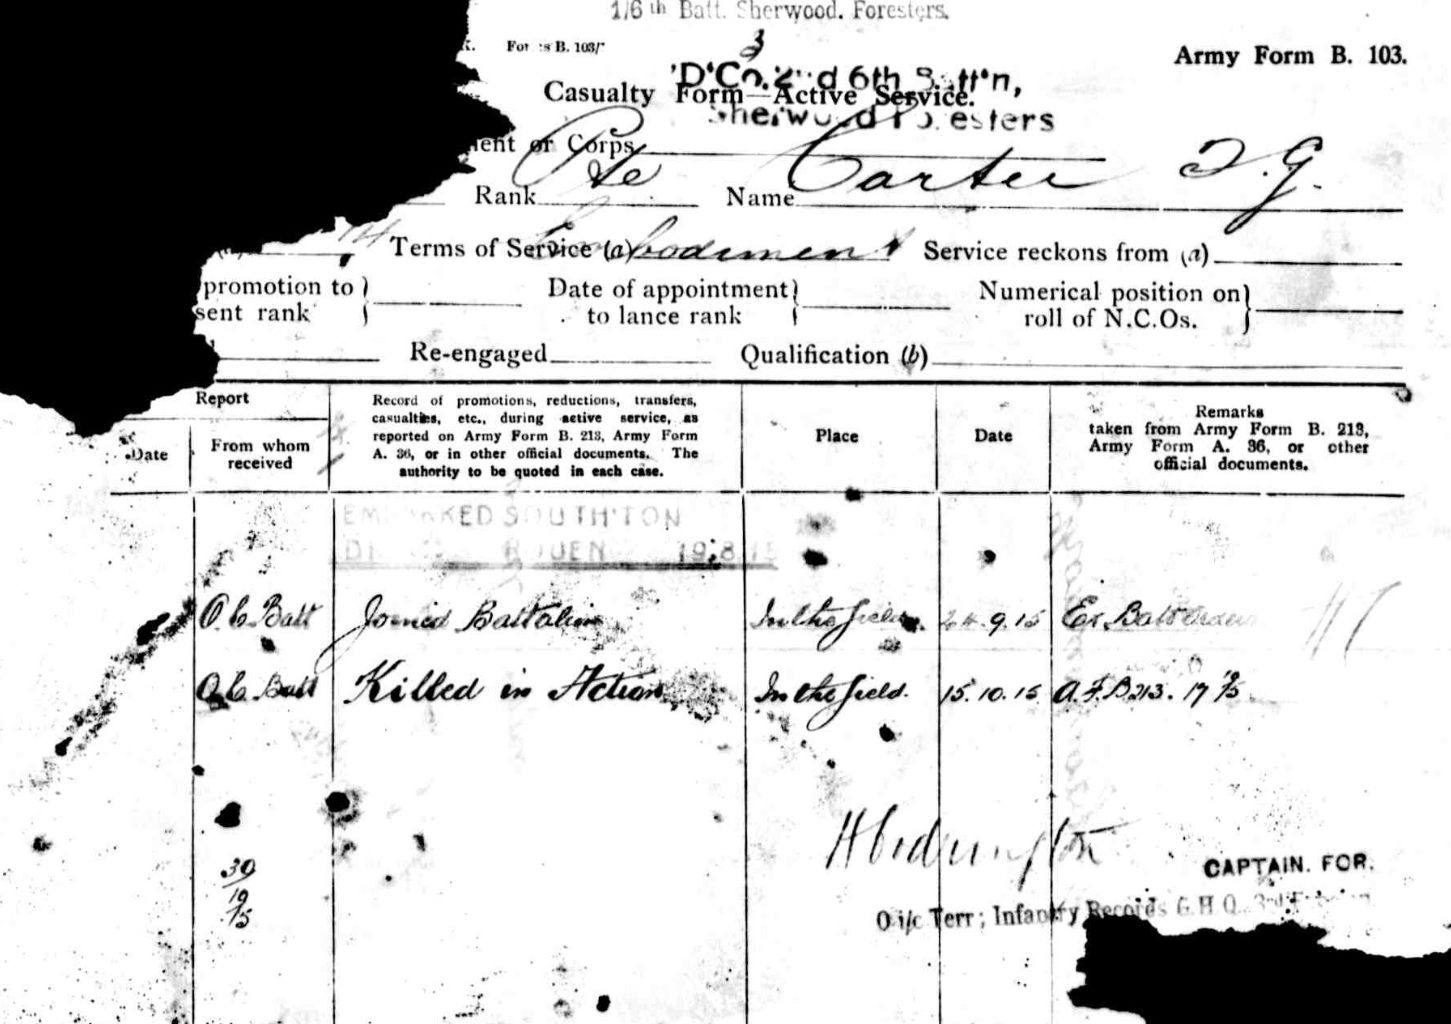 1/6th Batt. Sherwood. Foresters.
Army Form B. 103.
'D' Co. 2nd 6th Batt'n,
Casualty Form—Active Service.
Sherwood Foresters
or Corps
Rank Pte Name Carter
14 Terms of Service (a) Embodiment Service reckons from (a)
promotion to } Date of appointment } Numerical position on }
sent rank to lance rank roll of N.C.Os.
Re-engaged Qualification (b)
Report
Date
From whom
received
Record of promotions, reductions, transfers,
casualties, etc., during active service, as
reported on Army Form B. 213, Army Form
A. 36, or in other official documents. The
authority to be quoted in each case.
Place
Date
Remarks
taken from Army Form B. 213,
Army Form A. 36, or other
official documents.
EMBARKED SOUTH'TON
ROUEN 19.8.15
O.C. Batt Joined Battalion In the field. 24.9.15 Ex. Batt
O.C. Batt Killed in Action In the field. 15.10.15 A.F.B213.
30
10
15
CAPTAIN. FOR.
O i/c Terr; Infantry Records G.H.Q. 3rd